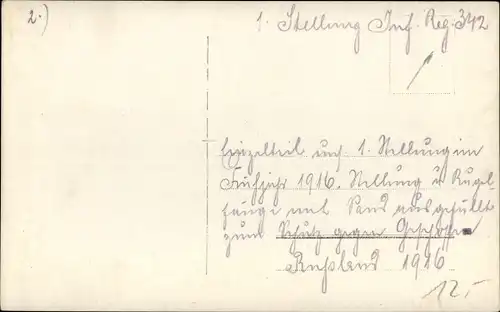 2.)
1. Stellung Inf. Reg. 342
Einzelteil uns. 1. Stellung im
Frühjahr 1916. Stellung u Kugel-
fänge mit Sand ausgefüllt
zum Schutz gegen Geschosse
Russland 1916
12,-